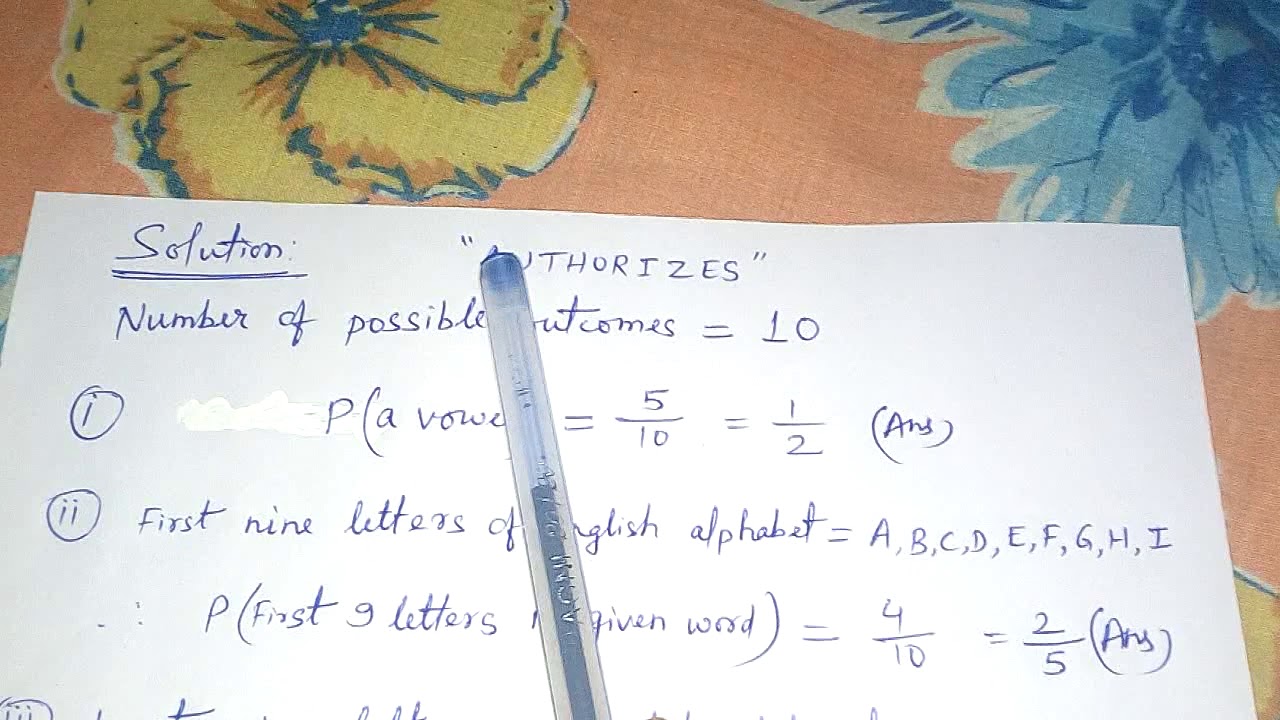 Solution: "AUTHORIZES"
Number of possible outcomes = 10
(i) P(a vowel) = 5/10 = 1/2 (Ans)
(ii) First nine letters of English alphabet = A, B, C, D, E, F, G, H, I
∴ P(First 9 letters given word) = 4/10 = 2/5 (Ans)
(iii)